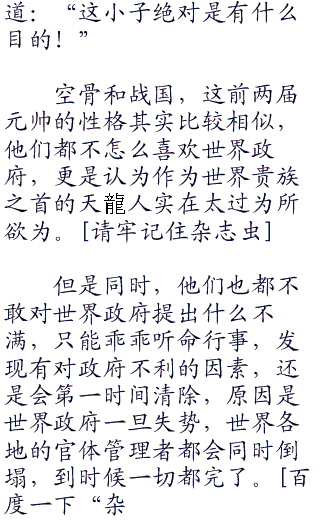 道：“这小子绝对是有什么
目的！”
空骨和战国，这前两届
元帅的性格其实比较相似，
他们都不怎么喜欢世界政
府，更是认为作为世界贵族
之首的天龍人实在太过为所
欲为。[请牢记住杂志虫]
但是同时，他们也都不
敢对世界政府提出什么不
满，只能乖乖听命行事，发
现有对政府不利的因素，还
是会第一时间清除，原因是
世界政府一旦失势，世界各
地的官体管理者都会同时倒
塌，到时候一切都完了。[百
度一下“杂